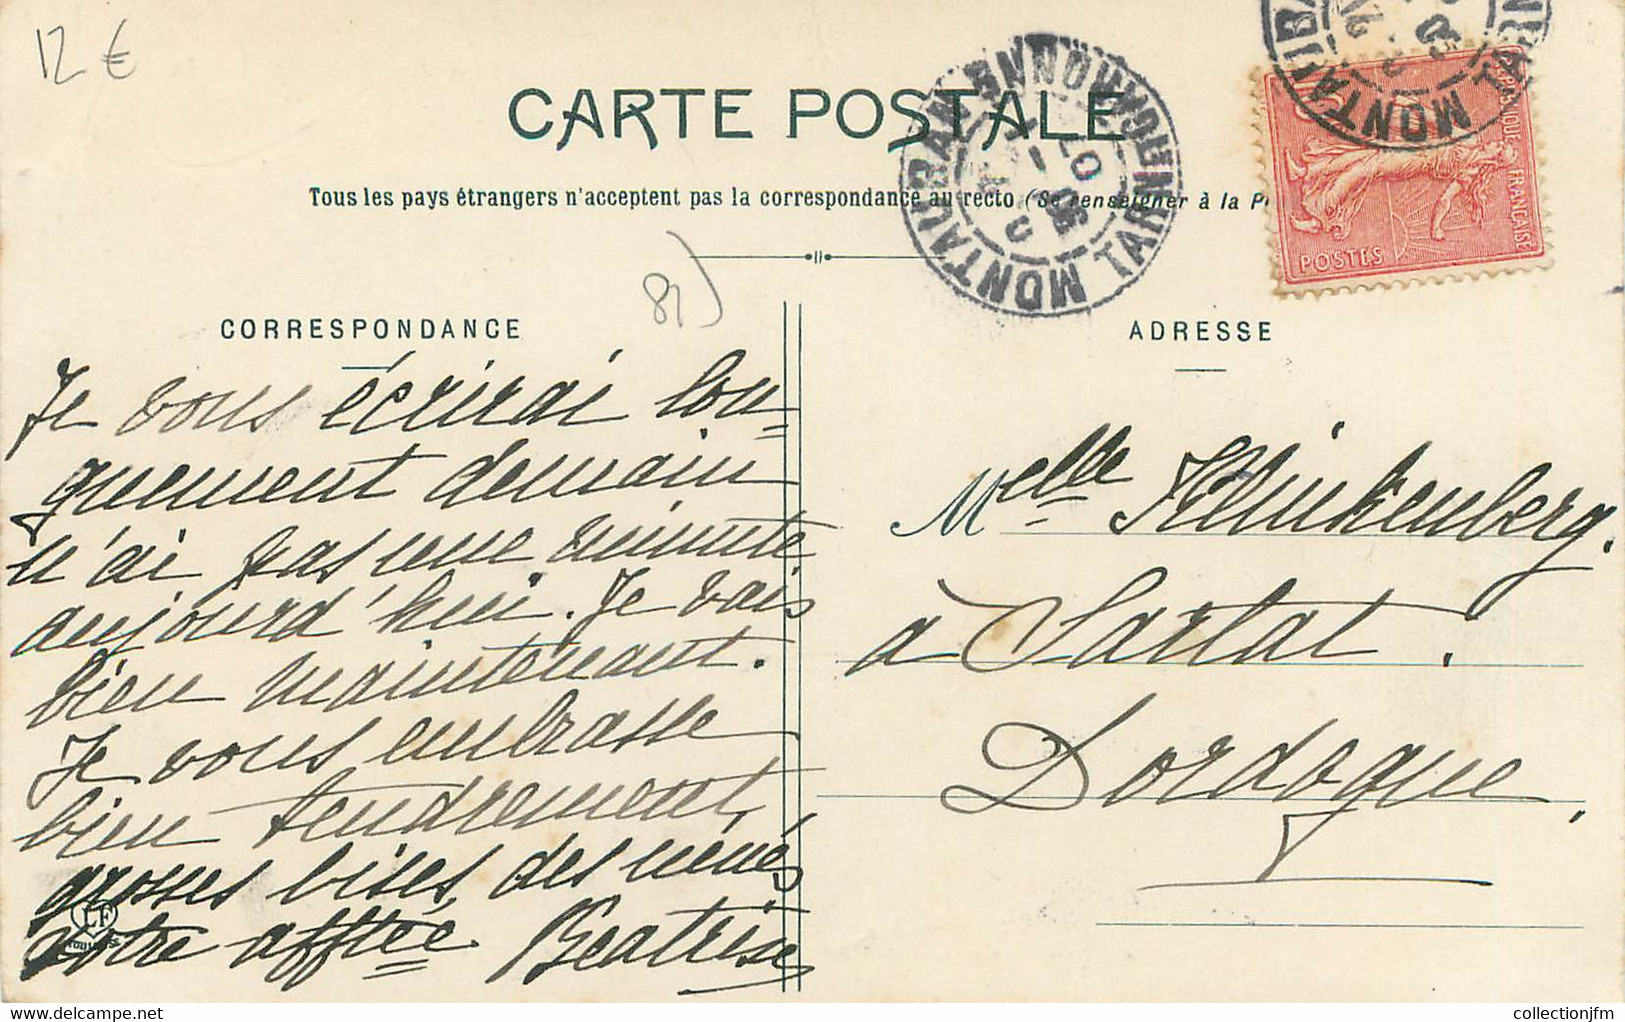 12 €
CARTE POSTALE
Tous les pays étrangers n'acceptent pas la correspondance au recto (Se renseigner à la P
MONTAUBAN TARN
RÉPUBLIQUE FRANÇAISE
POSTES
MONTAUBAN TARN
CORRESPONDANCE
Je vous écrirai lon=
guement demain
n'ai pas une minute
aujourd'hui. Je vais
bien maintenant.
Je vous embrasse
bien tendrement,
grosses bises des nénés
votre afftée Béatrise
LF
TOULOUSE
ADRESSE
Melle Klinkenberg.
à Sarlat.
Dordogne.
collectionjfm